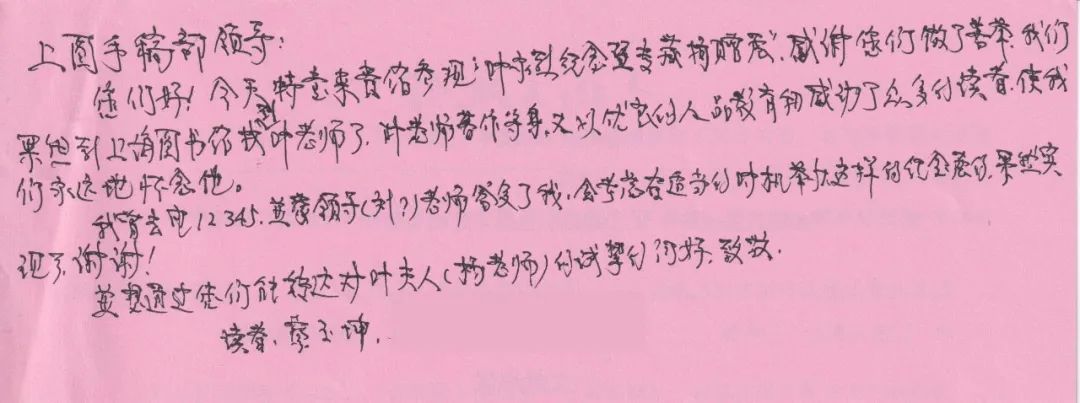 上图手稿部领导:
您们好!今天特意来贵馆参观“叶永烈纪念暨专藏捐赠展”,感谢您们做了善举,我们
果然到上海图书馆找到叶老师了,叶老师著作等身,又以优良的人品教育和感动了众多的读者,使我
们永远地怀念他。
我曾去电12345,并蒙领导(刘?)老师答复了我,会考虑在适当的时机举办这样的纪念展的,果然实
现了,谢谢!
并想通过您们能转达对叶夫人(杨老师)的诚挚的问好、致敬.
读者,蔡玉坤,